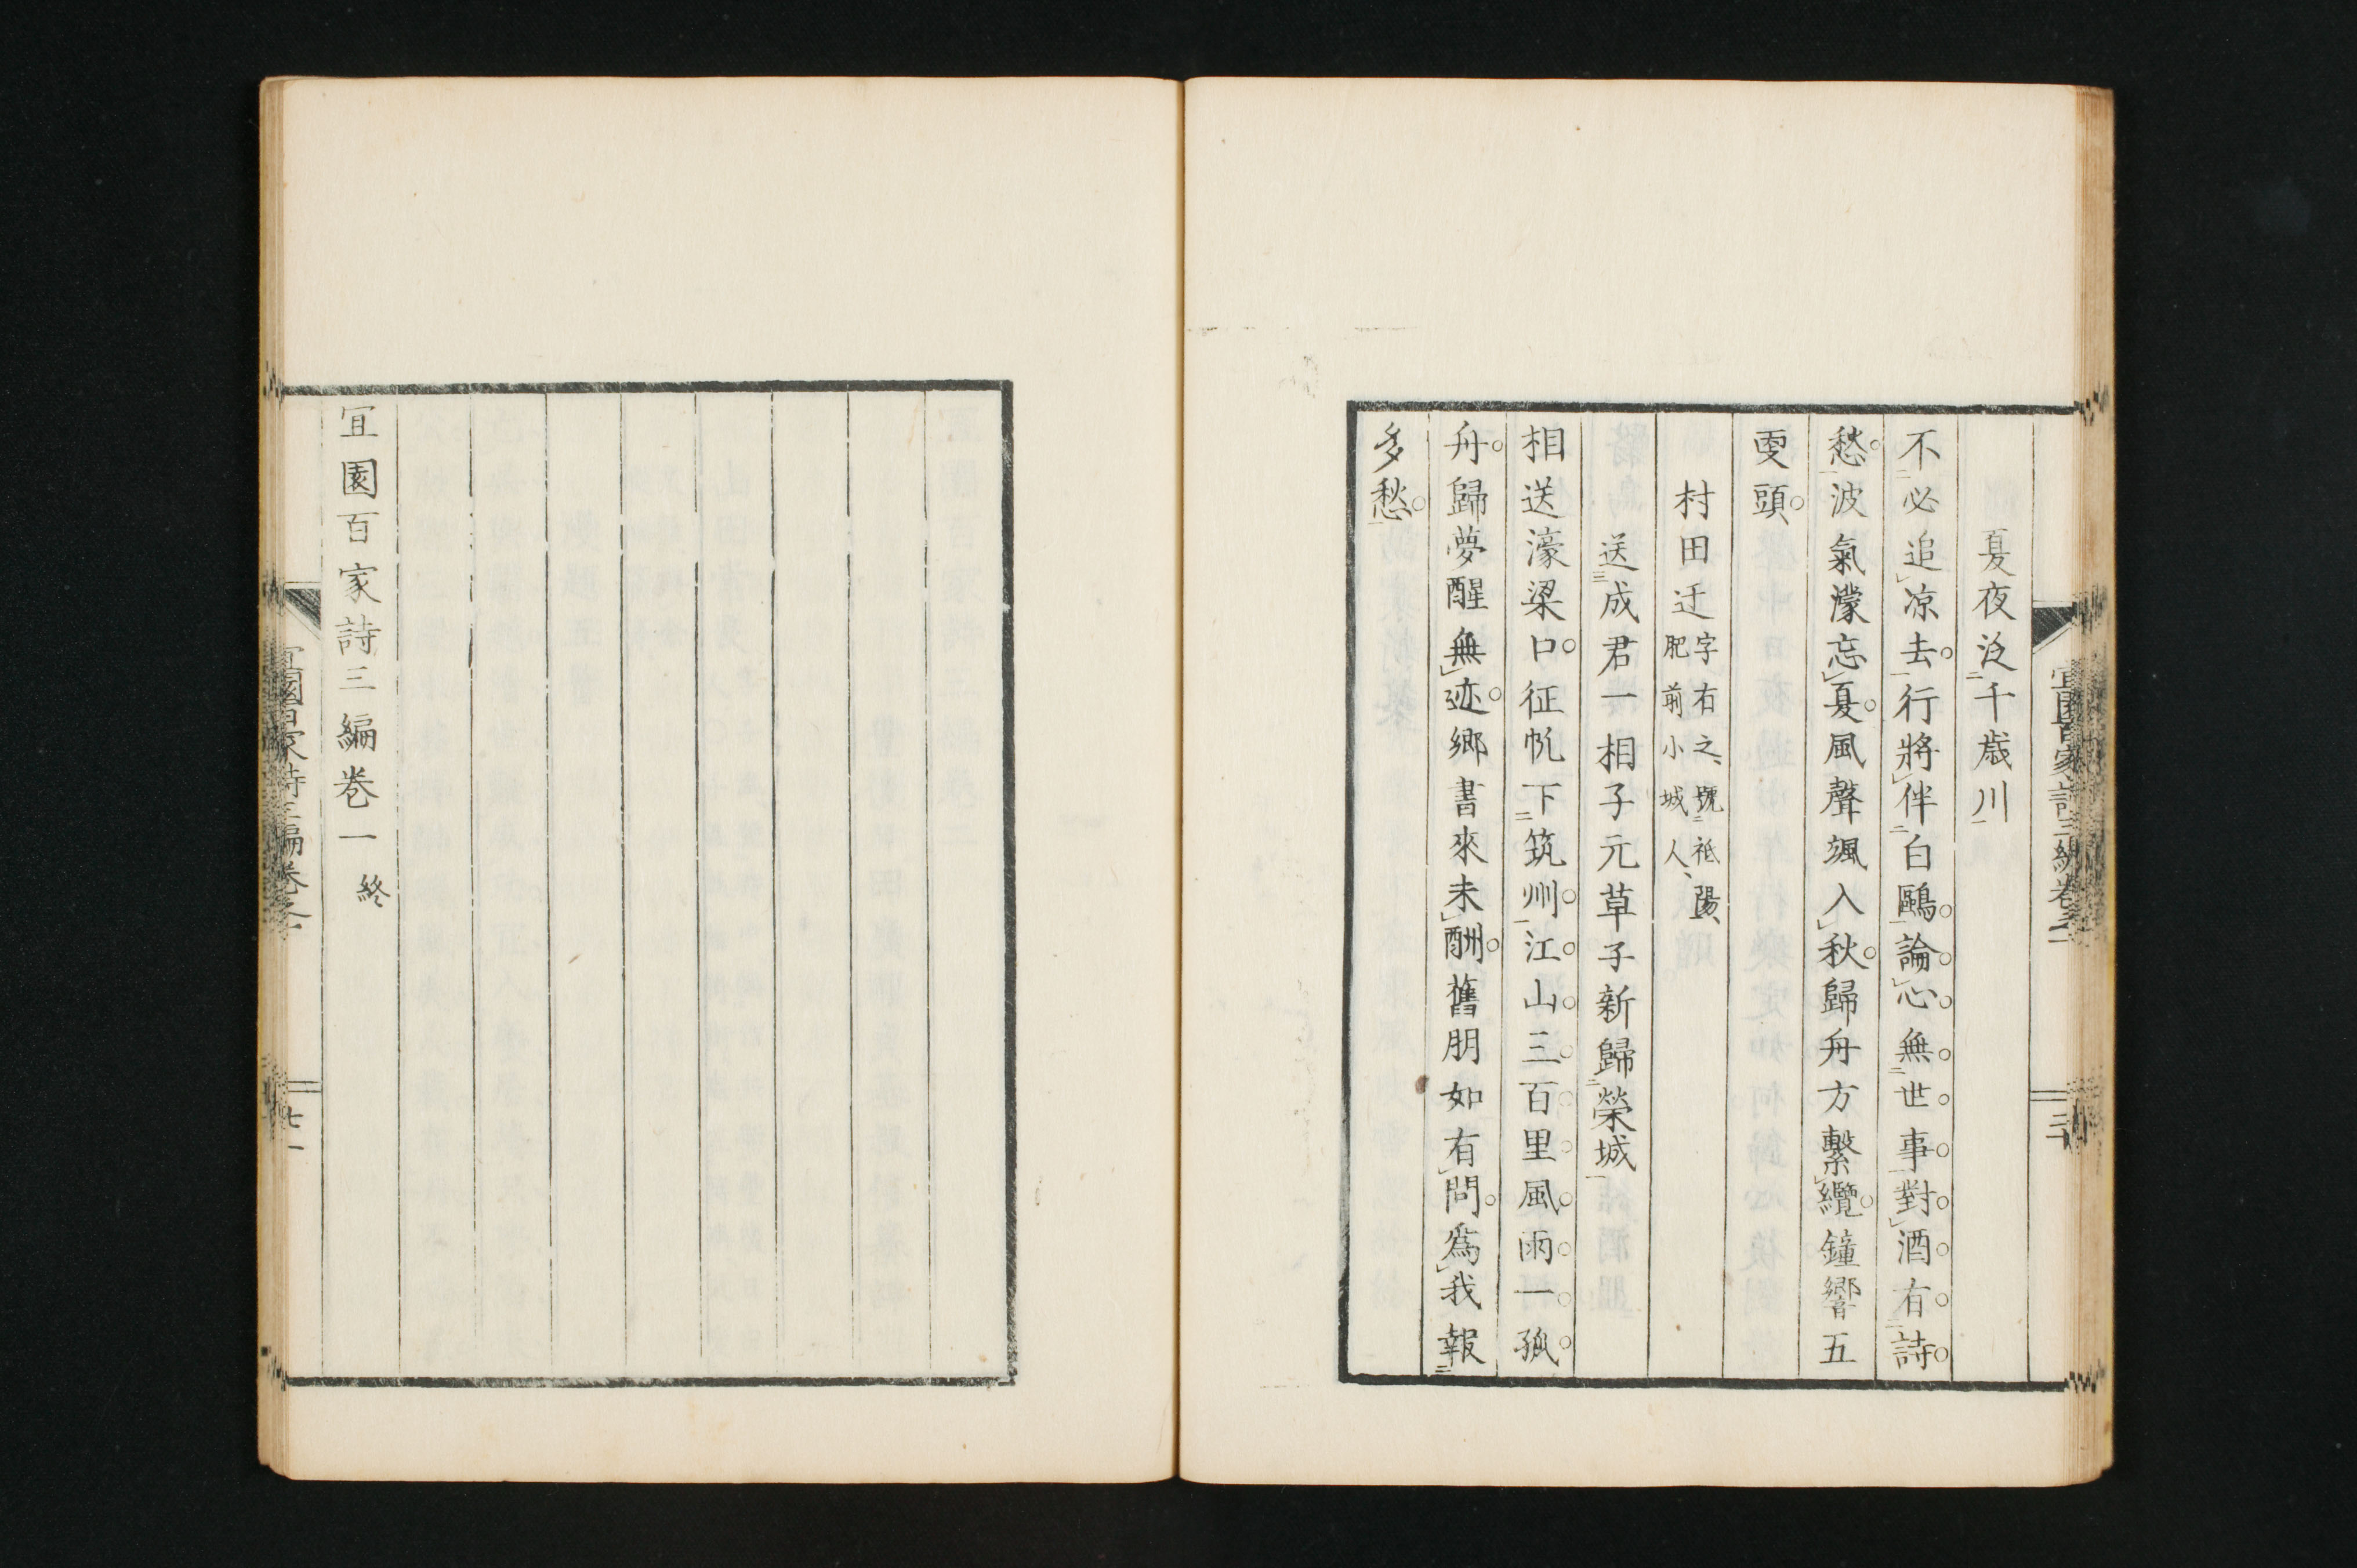 夏夜泛千歳川
不必追凉去行將伴白鷗論心無世事對酒有詩
愁波氣濛忘夏風聲颯入秋歸舟方繫纜鐘響五
更頭
村田迂字右之號祗陽
肥前小城人
送成君一相子元草子新歸榮城
相送濠梁口征帆下筑州江山三百里風雨一孤
舟歸夢醒無迹鄉書來未酬舊朋如有問爲我報
多愁
宜園百家詩三編卷一終
宜園百家詩三編卷之一